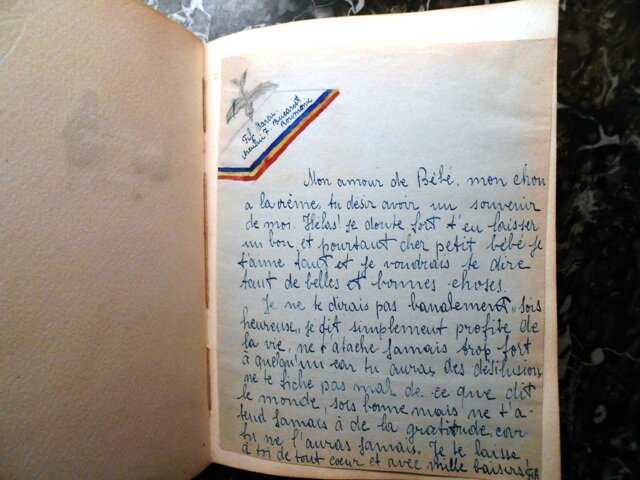 Bucarest
Roumanie
Mon amour de Bébé, mon chou
a la crème, tu désir avoir un souvenir
de moi. Hélas! je doute fort t'en laisser
un bon, et pourtant cher petit bébé je
t'aime tant et je voudrais te dire
tant de belles et bonnes choses.
Je ne te dirais pas banalement „sois
heureuse„ je dit simplement profite de
la vie, ne t'atache jamais trop fort
à quelqu'un car tu auras des désilusion
ne te fiche pas mal de ce que dit
le monde, sois bonne mais ne t'a-
tend jamais à de la gratitude, car
tu ne l'auras jamais. Je te laisse
à toi de tout coeur et avec mille baisers!